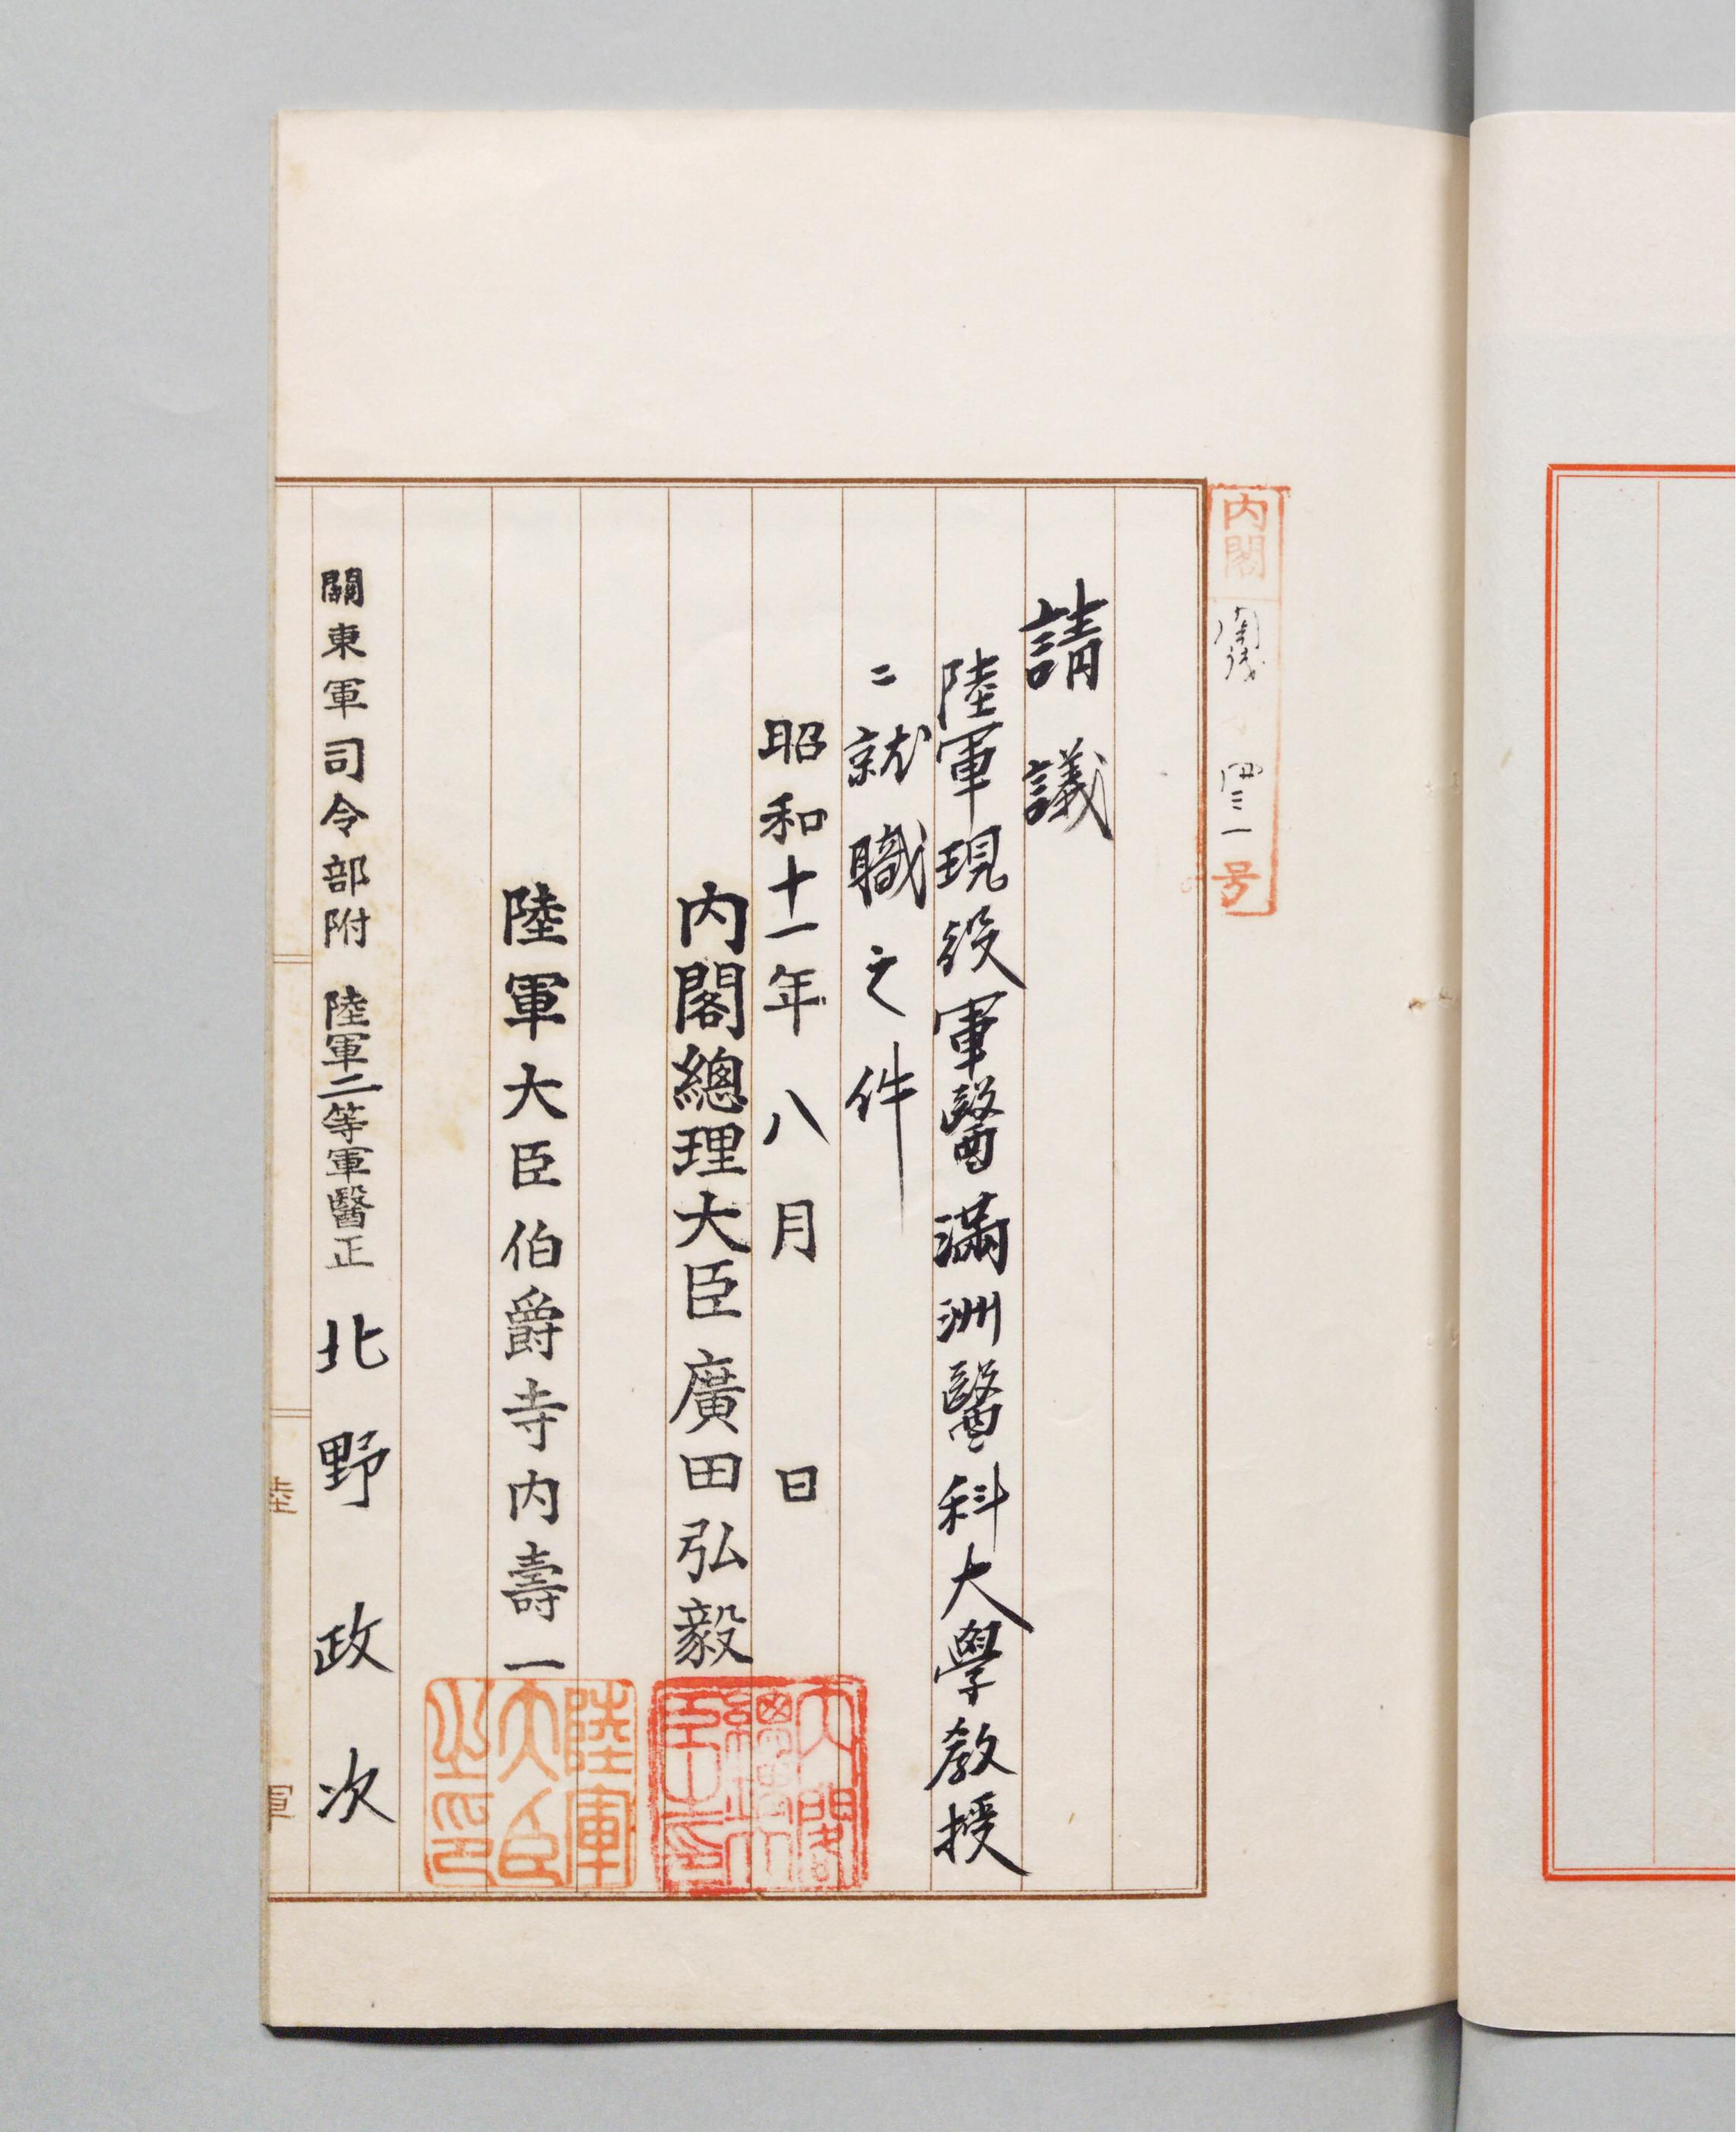 内閣
号
請議
陸軍現役軍醫滿洲醫科大學教授
ニ就職之件
昭和十一年八月 日
内閣總理大臣廣田弘毅
陸軍大臣伯爵寺内壽一
陸軍大臣之印
關東軍司令部附 陸軍二等軍醫正 北野政次
陸軍